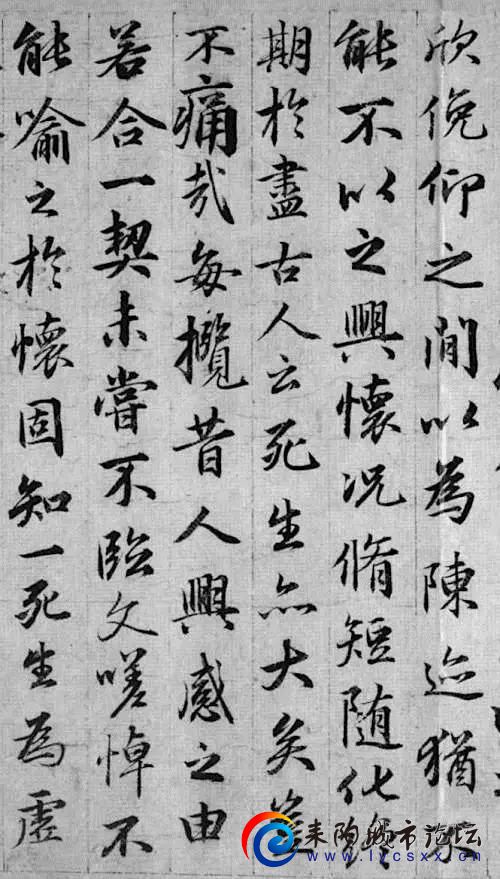 欣俛仰之間以為陳迹猶不
能不以之興懷況脩短随化終
期於盡古人云死生亦大矣豈
不痛哉每攬昔人興感之由
若合一契未嘗不臨文嗟悼不
能喻之於懷固知一死生為虛
耒阳城市论坛
www.lycsxx.cn